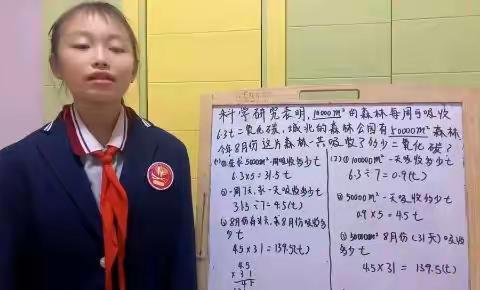 科学研究表明，10000m²的森林每周可吸收
6.3t二氧化碳，城北的森林公园有50000m²森林，
今年8月份这片森林一共吸收了多少二氧化碳？
50000m²一周吸收多少t
6.3×5=31.5t
②一周7天，求一天吸收多少t
31.5÷7=4.5(t)
③8月份有31天，求8月份吸收多
少t
4.5×31=139.5(t)
4.5
×31
(2)①10000m²一天吸收多少t
6.3÷7=0.9(t)
②50000m²一天吸收多少t
0.9×5=4.5t
③50000m²8月份(31天)吸收
多少t
4.5×31=139.5(t)